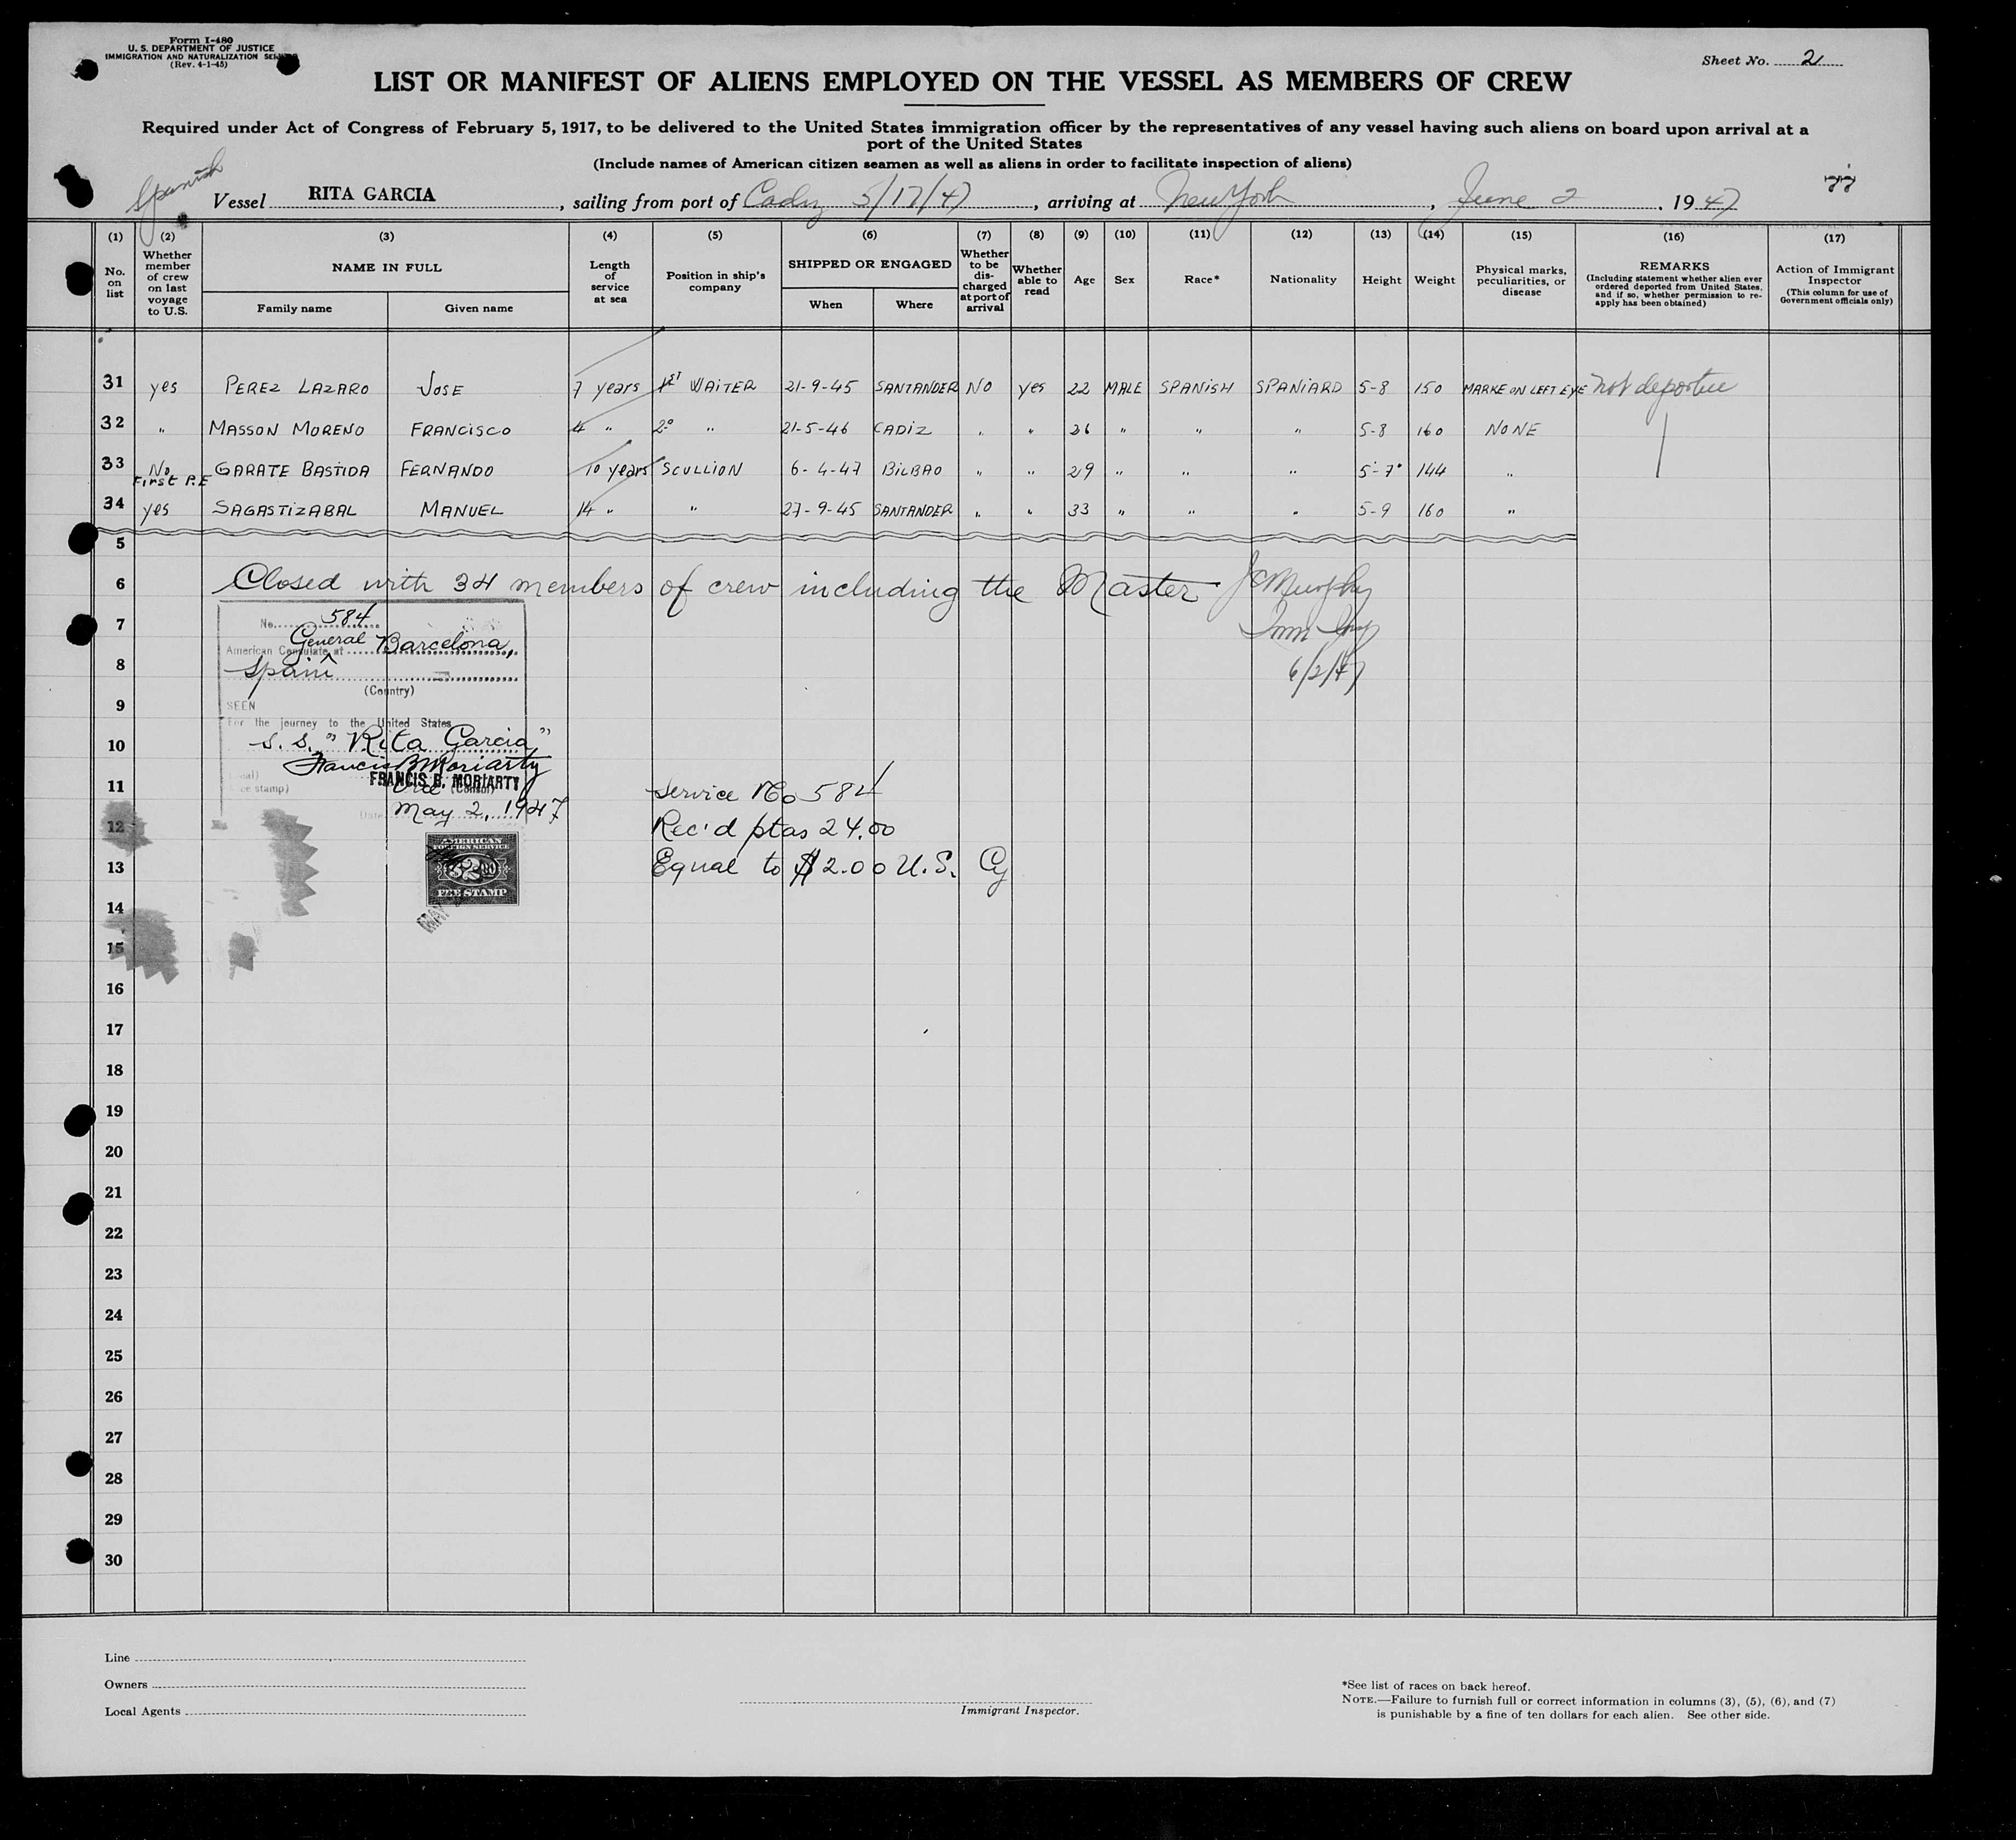 Form I-480
U. S. DEPARTMENT OF JUSTICE
IMMIGRATION AND NATURALIZATION
(Rev. 4-1-45)
Sheet No. 2
LIST OR MANIFEST OF ALIENS EMPLOYED ON THE VESSEL AS MEMBERS OF CREW
Required under Act of Congress of February 5, 1917, to be delivered to the United States immigration officer by the representatives of any vessel having such aliens on board upon arrival at a
port of the United States
(Include names of American citizen seamen as well as aliens in order to facilitate inspection of aliens)
Spanish Vessel RITA GARCIA, sailing from port of Cadiz 5/17/47, arriving at New York, June 2, 1947
(1) (2) (3) (4) (5) (6) (7) (8) (9) (10) (11) (12) (13) (14) (15) (16) (17)
No. on list
Whether member of crew on last voyage to U.S.
NAME IN FULL
Family name Given name
Length of service at sea
Position in ship's company
SHIPPED OR ENGAGED
When Where
Whether to be discharged at port of arrival
Whether able to read
Age
Sex
Race*
Nationality
Height
Weight
Physical marks, peculiarities, or disease
REMARKS
(Including statement whether alien ever ordered deported from United States, and if so, whether permission to re-apply has been obtained)
Action of Immigrant Inspector
(This column for use of Government officials only)
31 yes PEREZ LAZARO JOSE 7 years 1ST WAITER 21-9-45 SANTANDER NO yes 22 MALE SPANISH SPANIARD 5-8 150 MARKE ON LEFT EYE not deportee
32 " MASSON MORENO FRANCISCO 4 " 2º " 21-5-46 CADIZ " " 26 " " " 5-8 160 NONE
33 No First P.E GARATE BASTIDA FERNANDO 10 years SCULLION 6-4-47 BILBAO " " 29 " " " 5-7 144 "
34 yes SAGASTIZABAL MANUEL 14 " " 27-9-45 SANTANDER " " 33 " " " 5-9 160 "
5
6 Closed with 34 members of crew including the Master JC Murphy
7 No. 584
American Consulate General at Barcelona,
8 Spain
6/2/47
(Country)
9 SEEN
For the journey to the United States
10 S. S. "Rita Garcia"
Francis B Moriarty
FRANCIS B. MORIARTY
11 Vice (Consul)
Service No 584
Date May 2, 1947
12 Rec'd ptas 24.00
13 Equal to $2.00 U.S. Cy
AMERICAN
FOREIGN SERVICE
$2.00
FEE STAMP
MAY
14
15
16
17
18
19
20
21
22
23
24
25
26
27
28
29
30
Line
Owners
Local Agents
Immigrant Inspector.
*See list of races on back hereof.
NOTE.—Failure to furnish full or correct information in columns (3), (5), (6), and (7)
is punishable by a fine of ten dollars for each alien. See other side.